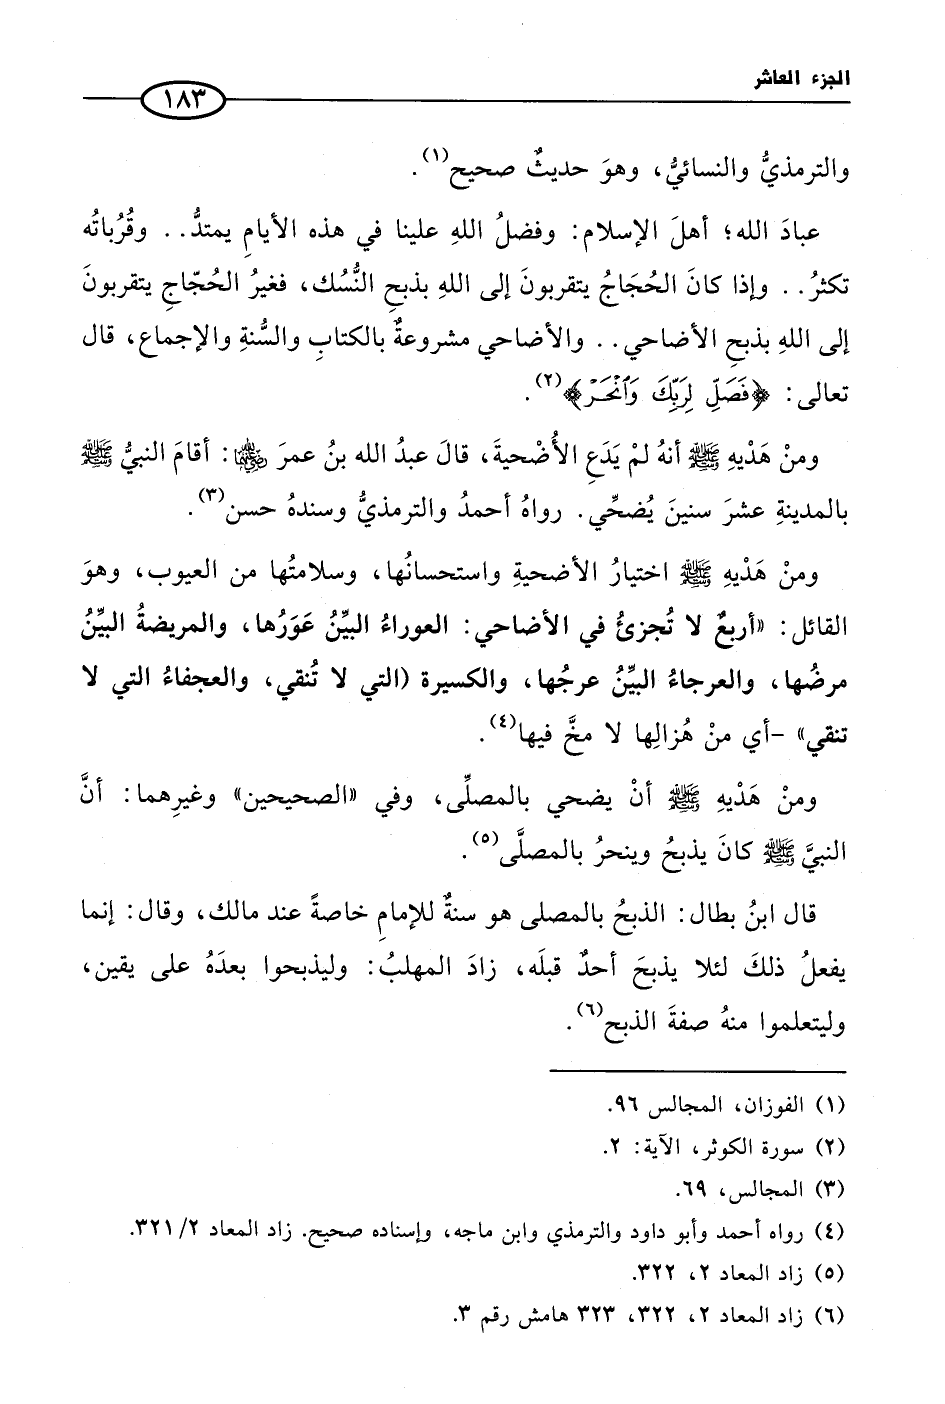 الجزء العاشر
١٨٣
والترمذيُّ والنسائيُّ، وهوَ حديثٌ صحيح(١).
عبادَ الله؛ أهلَ الإسلام: وفضلُ اللهِ علينا في هذه الأيامِ يمتدُّ.. وقُرُباتُه
تكثرُ.. وإذا كانَ الحُجَاجُ يتقربونَ إلى اللهِ بذبحِ النُّسُك، فغيرُ الحُجّاجِ يتقربونَ
إلى اللهِ بذبحِ الأضاحي.. والأضاحي مشروعةٌ بالكتابِ والسُّنةِ والإجماع، قال
تعالى: ﴿فَصَلِّ لِرَبِّكَ وَٱنْحَرْ﴾(٢).
ومنْ هَدْيِهِ ﷺ أنهُ لمْ يَدَعِ الأُضْحيةَ، قالَ عبدُ الله بنُ عمرَ ﵄: أقامَ النبيُّ ﷺ
بالمدينةِ عشرَ سنينَ يُضحِّي. رواهُ أحمدُ والترمذيُّ وسندهُ حسن(٣).
ومنْ هَدْيِهِ ﷺ اختيارُ الأضحيةِ واستحسانُها، وسلامتُها من العيوب، وهوَ
القائل: «أربعٌ لا تُجزئُ في الأضاحي: العوراءُ البيِّنُ عَوَرُها، والمريضةُ البيِّنُ
مرضُها، والعرجاءُ البيِّنُ عرجُها، والكسيرة (التي لا تُنقي، والعجفاءُ التي لا
تنقي» -أي منْ هُزالِها لا مخَّ فيها(٤).
ومنْ هَدْيِهِ ﷺ أنْ يضحي بالمصلِّى، وفي «الصحيحين» وغيرِهما: أنَّ
النبيَّ ﷺ كانَ يذبحُ وينحرُ بالمصلَّى(٥).
قال ابنُ بطال: الذبحُ بالمصلى هو سنةٌ للإمامِ خاصةً عند مالك، وقال: إنما
يفعلُ ذلكَ لئلا يذبحَ أحدٌ قبلَه، زادَ المهلبُ: وليذبحوا بعدَهُ على يقين،
وليتعلموا منهُ صفةَ الذبح(٦).
(١) الفوزان، المجالس ٩٦.
(٢) سورة الكوثر، الآية: ٢.
(٣) المجالس، ٦٩.
(٤) رواه أحمد وأبو داود والترمذي وابن ماجه، وإسناده صحيح. زاد المعاد ٢/ ٣٢١.
(٥) زاد المعاد ٢، ٣٢٢.
(٦) زاد المعاد ٢، ٣٢٢، ٣٢٣ هامش رقم ٣.